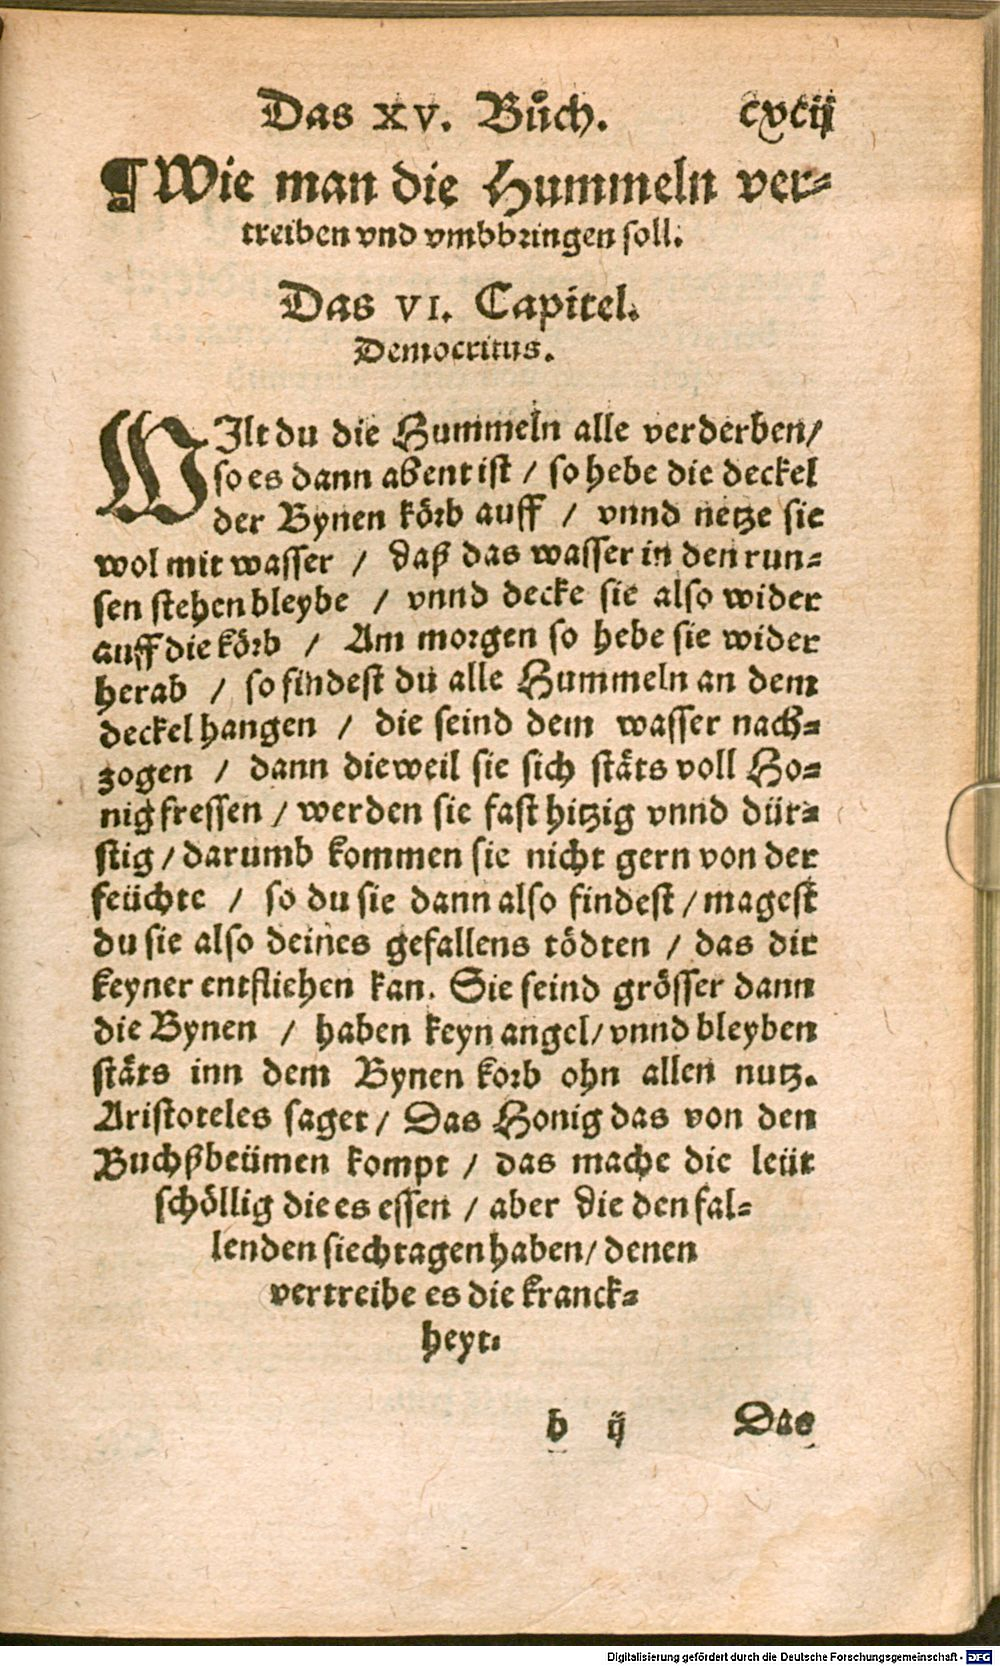 Das XV. Bůch. cxcij
¶ Wie man die Hummeln ver⸗
treiben vnd vmbbringen soll.
Das VI. Capitel.
Democritus.
WIlt du die Hummeln alle verderben/
so es dann abent ist / so hebe die deckel
der Bynen körb auff / vnnd netze sie
wol mit wasser / daß das wasser in den run⸗
sen stehen bleybe / vnnd decke sie also wider
auff die körb / Am morgen so hebe sie wider
herab / so findest du alle Hummeln an dem
deckel hangen / die seind dem wasser nach⸗
zogen / dann dieweil sie sich stäts voll Ho⸗
nig fressen / werden sie fast hitzig vnnd dür⸗
stig / darumb kommen sie nicht gern von der
feüchte / so du sie dann also findest / magest
du sie also deines gefallens tödten / das dir
keyner entfliehen kan. Sie seind grösser dann
die Bynen / haben keyn angel / vnnd bleyben
stäts inn dem Bynen korb ohn allen nutz.
Aristoteles saget / Das Honig das von den
Buchßbeümen kompt / das mache die leüt
schöllig die es essen / aber die den fal⸗
lenden siechtagen haben / denen
vertreibe es die kranck⸗
heyt.
b ij Das
Digitalisierung gefördert durch die Deutsche Forschungsgemeinschaft - DFG